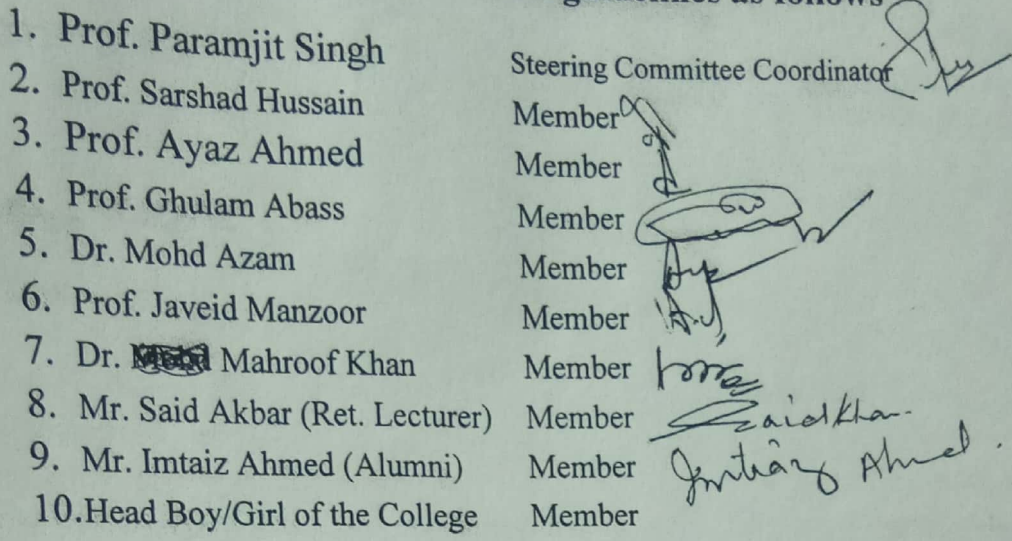 as follows
1. Prof. Paramjit Singh Steering Committee Coordinator
2. Prof. Sarshad Hussain Member
3. Prof. Ayaz Ahmed Member
4. Prof. Ghulam Abass Member
5. Dr. Mohd Azam Member
6. Prof. Javeid Manzoor Member
7. Dr. Mahroof Khan Member
8. Mr. Said Akbar (Ret. Lecturer) Member Said Khan
9. Mr. Imtaiz Ahmed (Alumni) Member Imtiaz Ahmed
10.Head Boy/Girl of the College Member